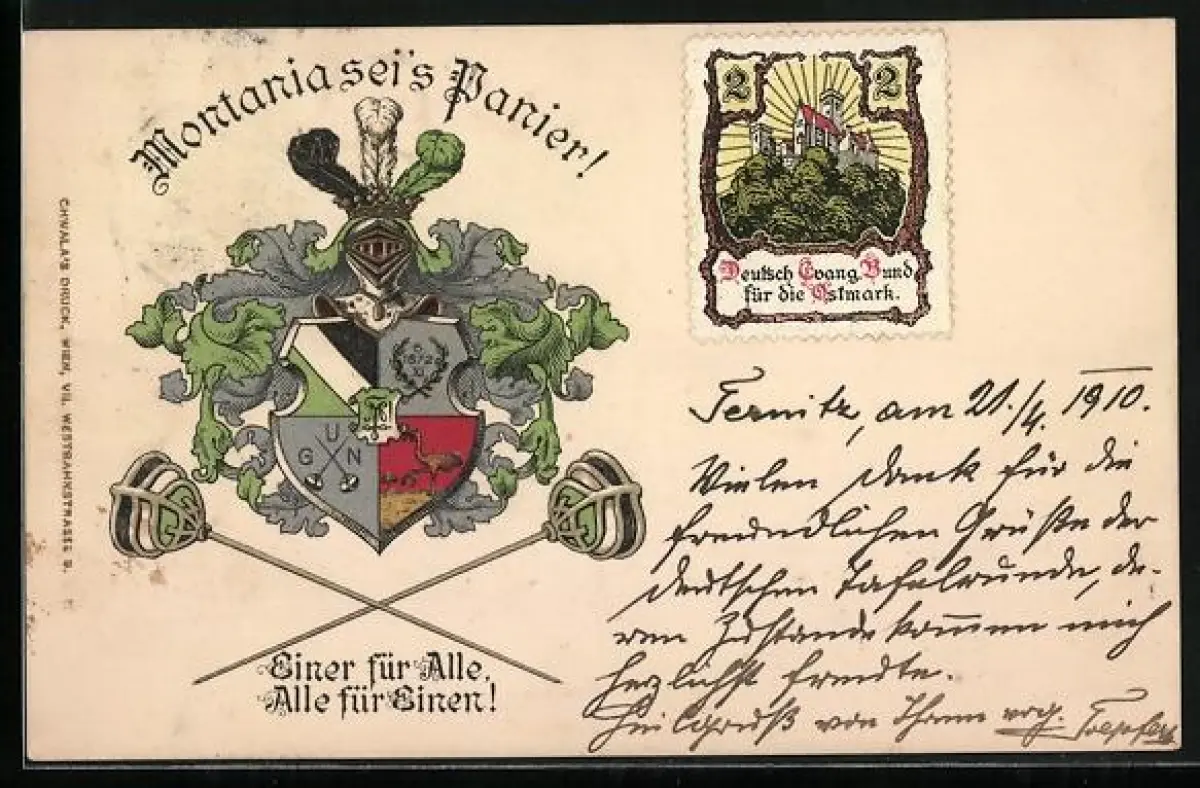 Montania sei's Panier!
CHWALA'S DRUCK, WIEN, VII. WESTBAHNSTRASSE 9.
2 2
Deutsch Evang. Bund
für die Ostmark.
1872
XI
U
G N
Einer für Alle,
Alle für Einen!
Ternitz, am 21./4. 1910.
Vielen Dank für die
freundlichen Grüße der
deutschen Tafelrunde, de-
ren Zustandekommen mich
herzlichst freute.
Heilgruß von Ihrem